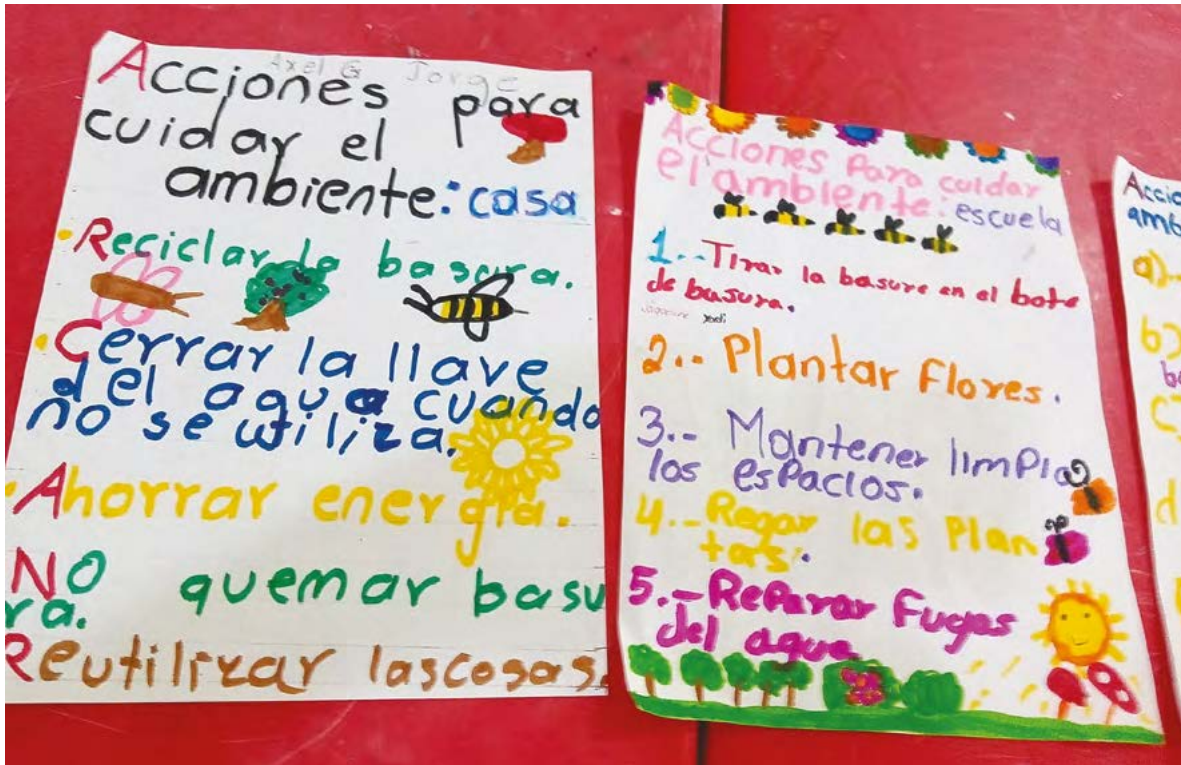 Axel G Jorge
Acciones para
cuidar el
ambiente: casa
Reciclar la basura.
Cerrar la llave
del agua cuando
no se utiliza.
Ahorrar energía.
No quemar basu
ra.
Reutilizar lascosas.
Acciones Para cuidar
el ambiente: escuela
1.-Tirar la basure en el bote
de basura.
2.- Plantar Flores.
3.- Mantener limpio
los espacios.
4.-Regar las Plan
tas.
5.-Reparar Fugas
del agua
Accio
amb
a)
b)
b
c)
d